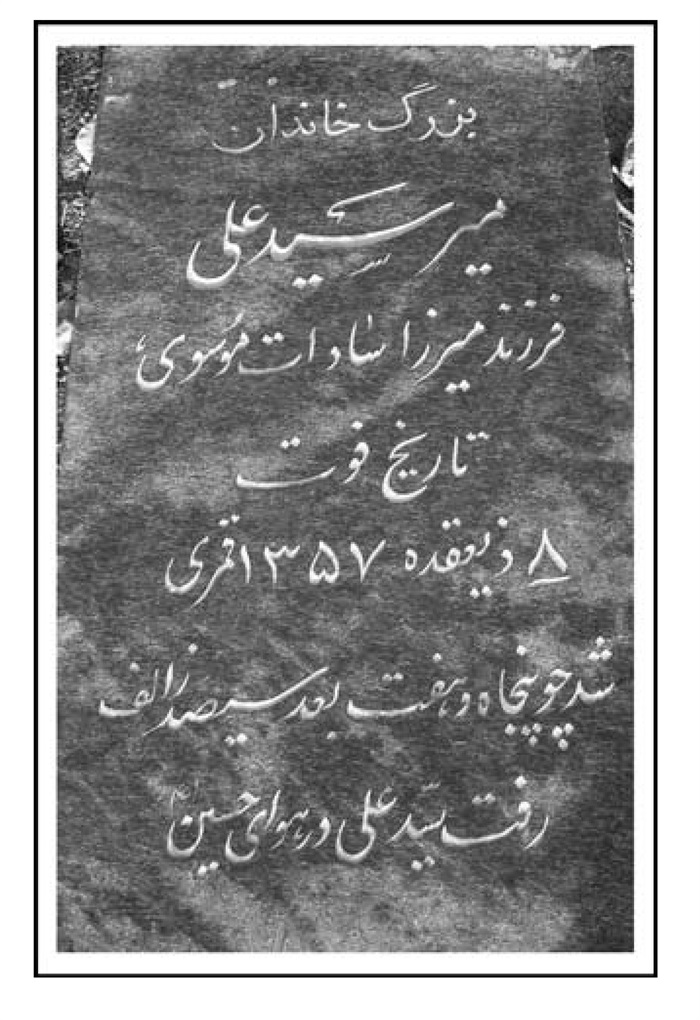 بزرگ خاندان
میر سید علی
فرزند میرزا سادات موسوی
تاریخ فوت
۸ ذیعقده ۱۳۵۷ قمری
شد چو پنجاه و هفت بعد سیصد ز الف
رفت سید علی در هوای حسین